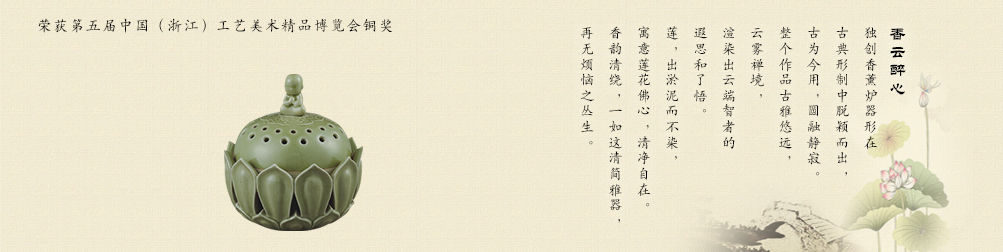 荣获第五届中国（浙江）工艺美术精品博览会铜奖
香云醉心
独创香薰炉器形在
古典形制中脱颖而出，
古为今用，圆融静寂。
整个作品古雅悠远，
云雾禅境，
渲染出云端智者的
遐思和了悟。
莲，出淤泥而不染，
寓意莲花佛心，清净自在。
香韵清绕，一如这清简雅器，
再无烦恼之丛生。